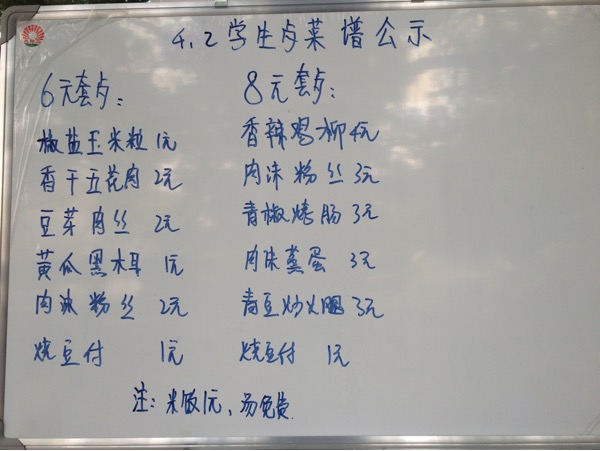 4.2学生卢菜谱公示
6元套卢:
椒盐玉米粒 1元
香干五花肉 2元
豆芽肉丝 2元
黄瓜黑木耳 1元
肉沫粉丝 2元
烧豆付 1元
8元套卢:
香辣鸡柳 4元
肉沫粉丝 3元
青椒烤肠 3元
肉沫蒸蛋 3元
青豆炒火腿 3元
烧豆付 1元
注:米饭1元、汤免费